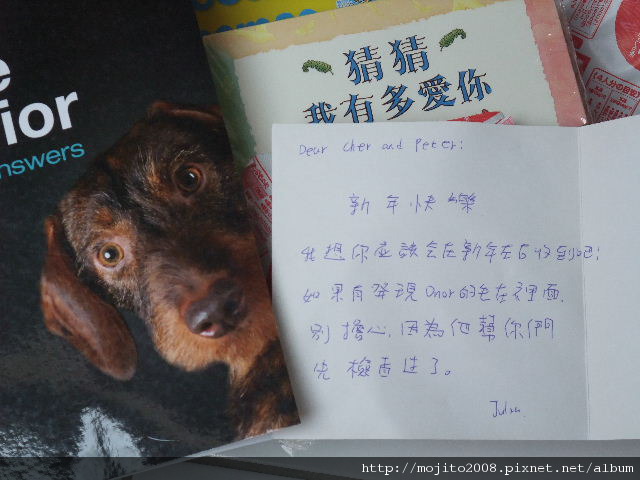 ior
nswers
猜猜
我有多愛你
Dear Cher and Peter:
新年快樂
我想你應該會在新年左右收到吧!
如果有發現Onor的毛在裡面,
別擔心,因為他幫你們
先檢查过了。
http://mojito2008.pixnet.net/album